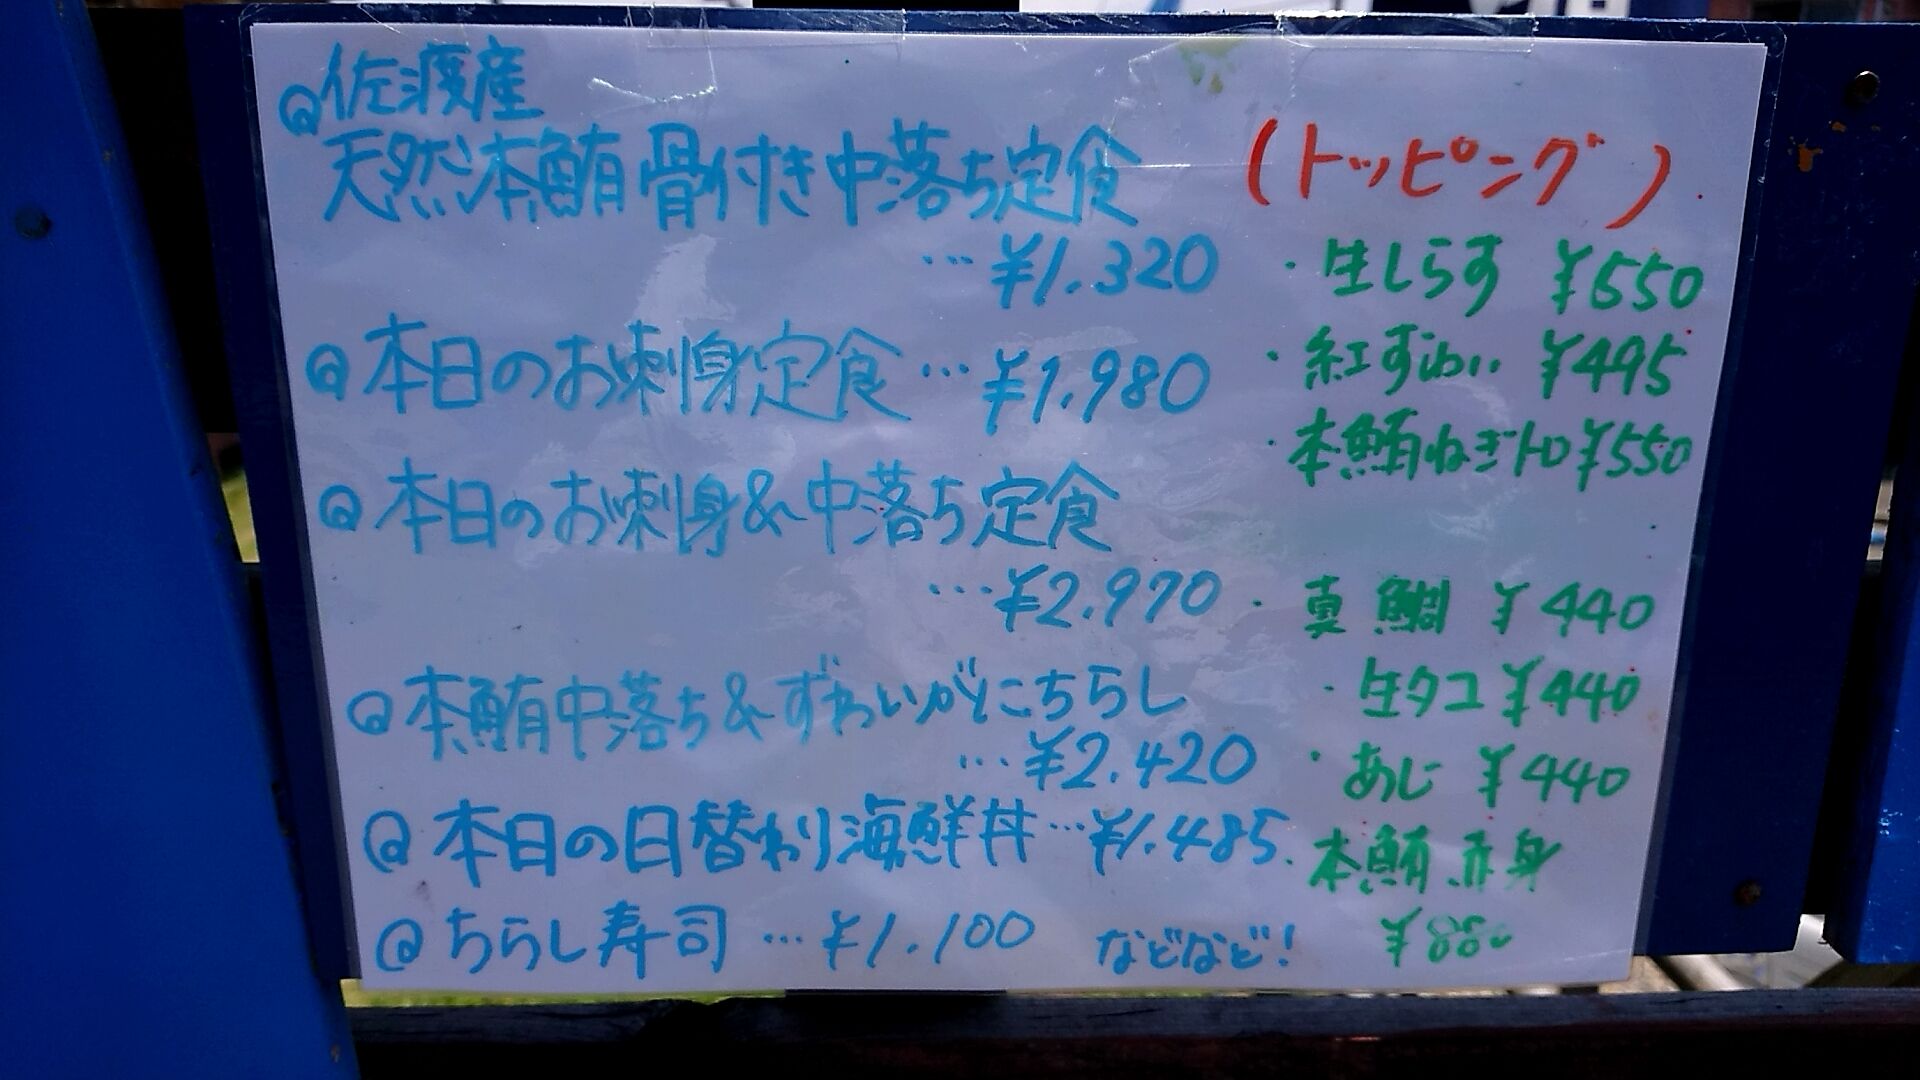 @佐渡産
天然本鮪骨付き中落ち定食
…¥1.320
@本日のお刺身定食…¥1.980
@本日のお刺身&中落ち定食
…¥2.970
@本鮪中落ち&ずわいがにこちらし
…¥2.420
@本日の日替わり海鮮丼…¥1.485
@ちらし寿司…¥1.100 などなど!
(トッピング)
・生しらす ¥550
・紅ずわい ¥495
・本鮪ねぎトロ¥550
・真鯛 ¥440
・生タコ¥440
・あじ ¥440
・本鮪赤身